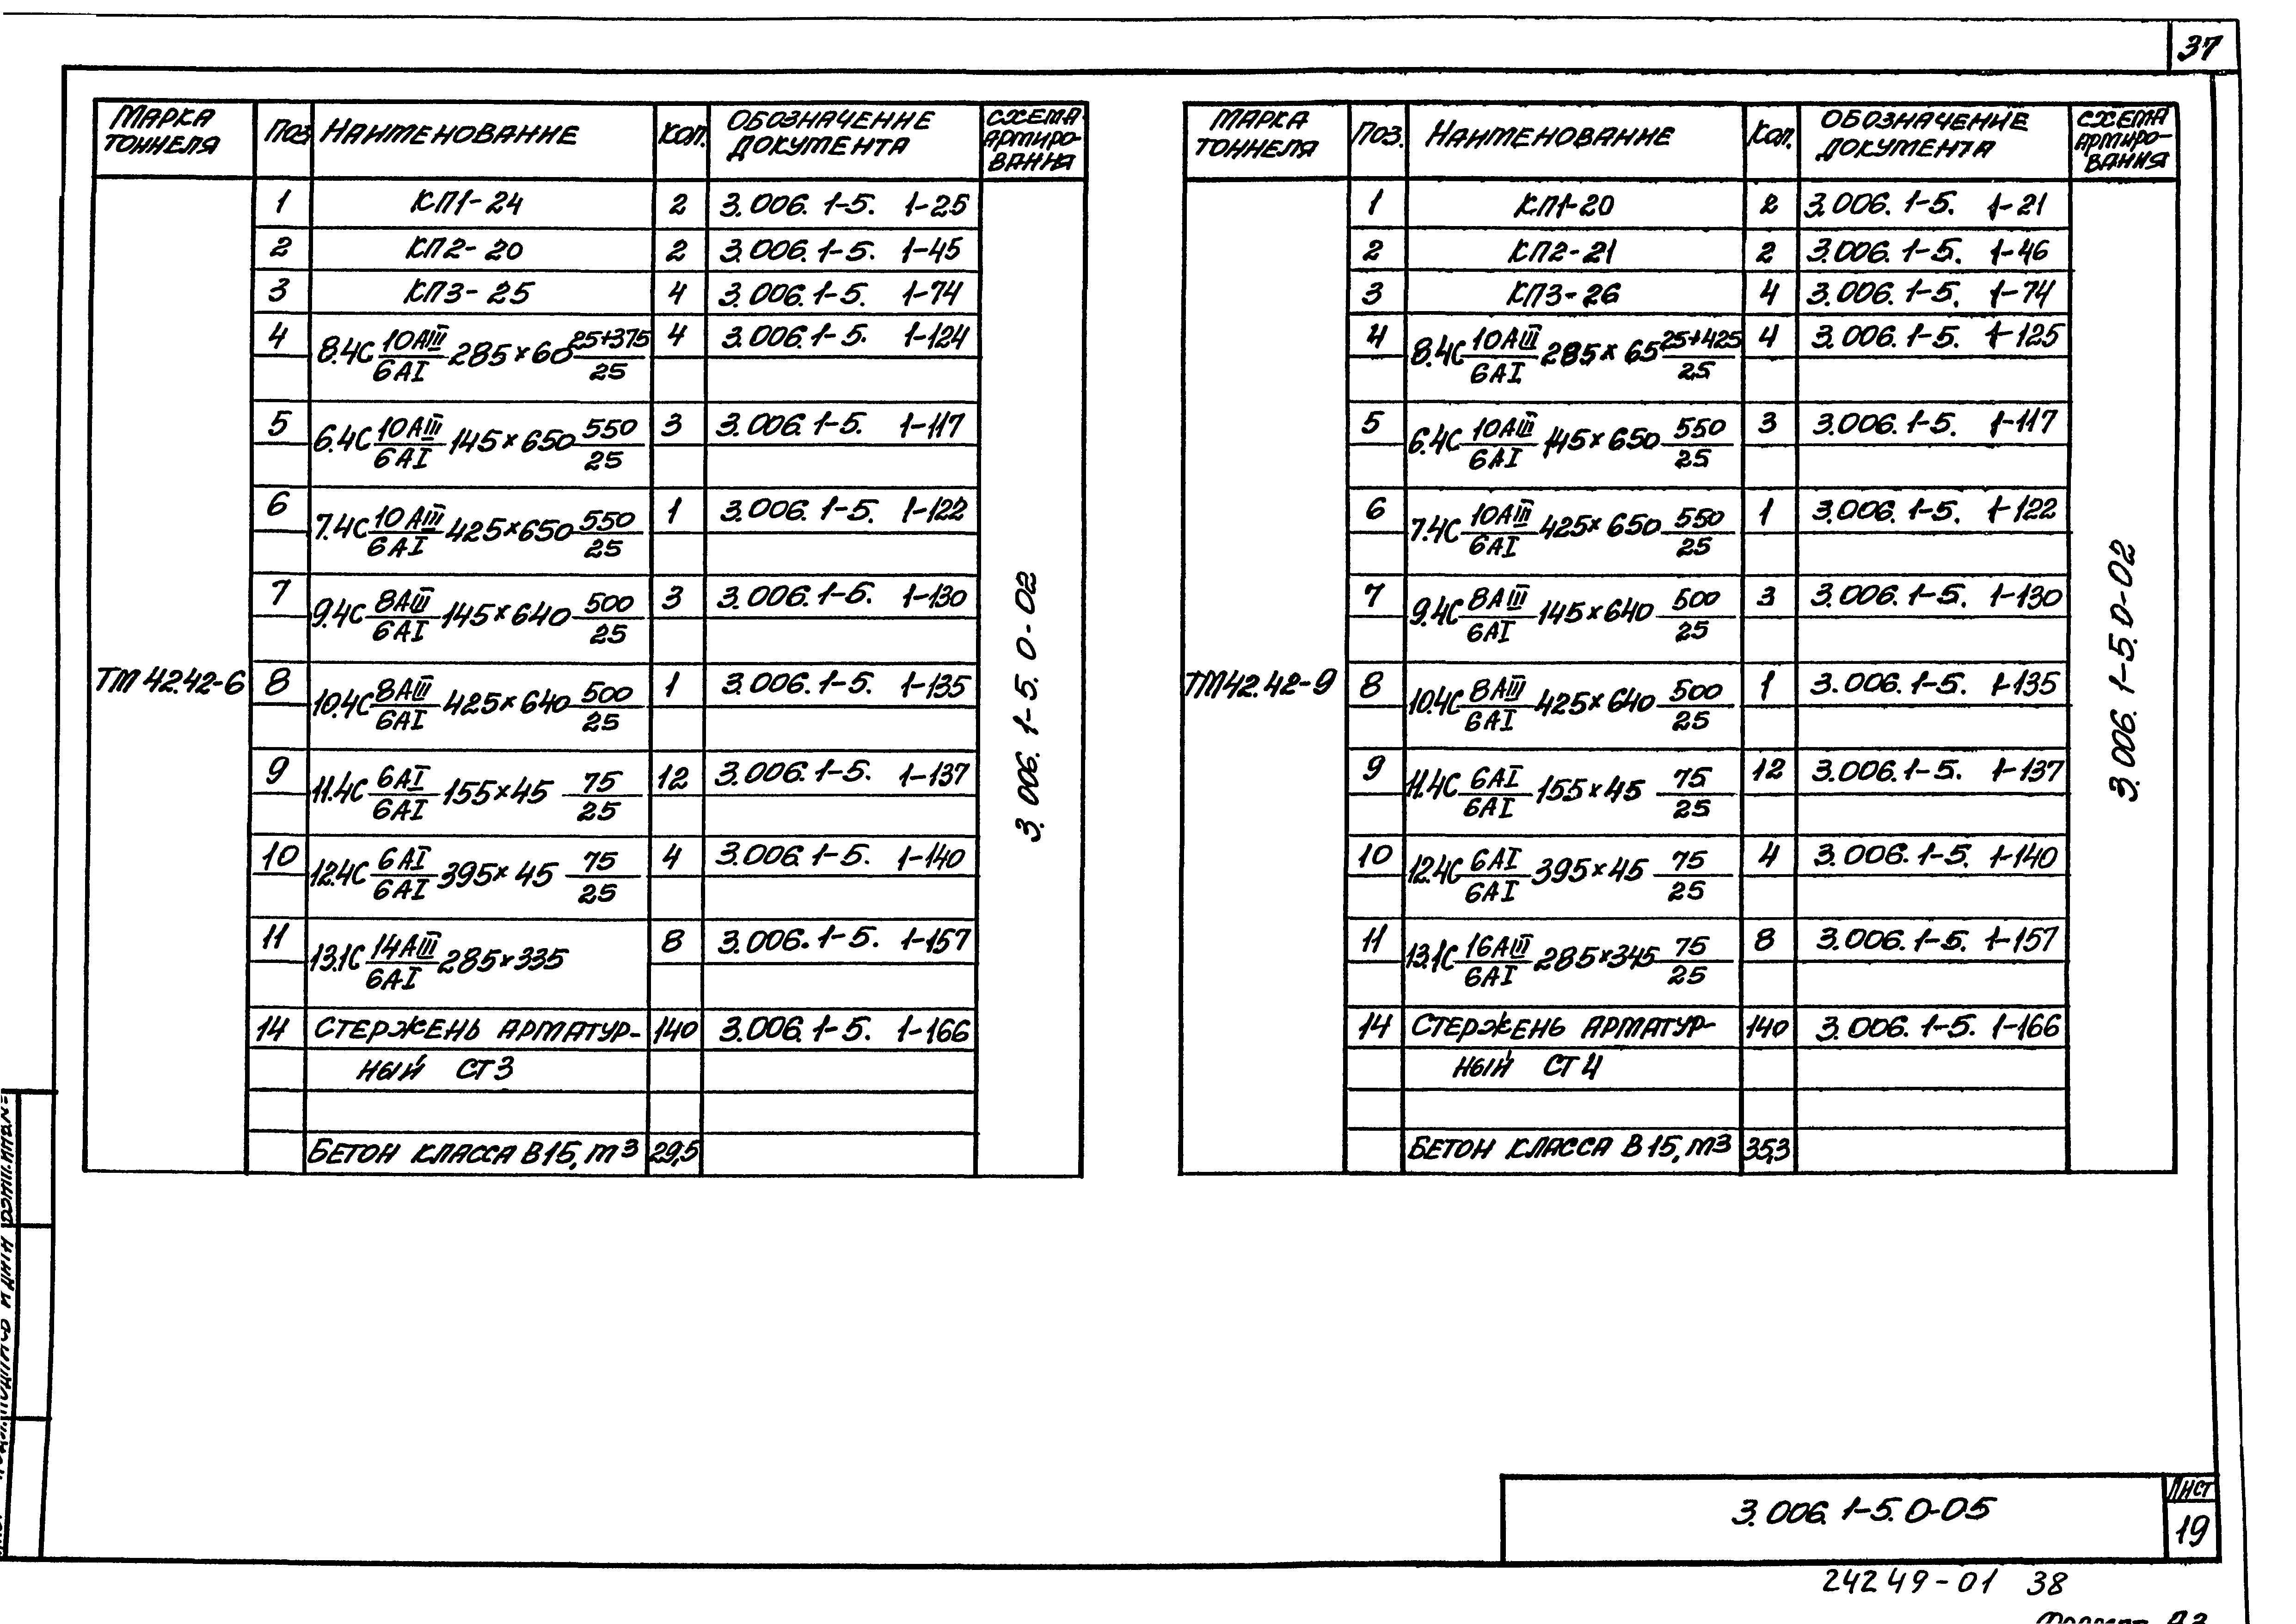 37
МАРКА ТОННЕЛЯ | ПОЗ. | НАИМЕНОВАНИЕ | КОЛ. | ОБОЗНАЧЕНИЕ ДОКУМЕНТА | СХЕМА АРМИРО-ВАНИЯ
ТМ 42.42-6
1 | КП1-24 | 2 | 3.006.1-5. 1-25
2 | КП2-20 | 2 | 3.006.1-5. 1-45
3 | КП3-25 | 4 | 3.006.1-5. 1-74
4 | 8.4С 10АIII/6АI 285×60 25+375/25 | 4 | 3.006.1-5. 1-124
5 | 6.4С 10АIII/6АI 145×650 550/25 | 3 | 3.006.1-5. 1-117
6 | 7.4С 10АIII/6АI 425×650 550/25 | 1 | 3.006.1-5. 1-122
7 | 9.4С 8АIII/6АI 145×640 500/25 | 3 | 3.006.1-5. 1-130
8 | 10.4С 8АIII/6АI 425×640 500/25 | 1 | 3.006.1-5. 1-135
9 | 11.4С 6АI/6АI 155×45 75/25 | 12 | 3.006.1-5. 1-137
10 | 12.4С 6АI/6АI 395×45 75/25 | 4 | 3.006.1-5. 1-140
11 | 13.1С 14АIII/6АI 285×335 | 8 | 3.006.1-5. 1-157
14 | СТЕРЖЕНЬ АРМАТУР- | 140 | 3.006.1-5. 1-166
НЫЙ СТ3
БЕТОН КЛАССА В15, м3 | 29,5
3.006.1-5.0-02
МАРКА ТОННЕЛЯ | ПОЗ. | НАИМЕНОВАНИЕ | КОЛ. | ОБОЗНАЧЕНИЕ ДОКУМЕНТА | СХЕМА АРМИРО-ВАНИЯ
ТМ42.42-9
1 | КП1-20 | 2 | 3.006.1-5. 1-21
2 | КП2-21 | 2 | 3.006.1-5. 1-46
3 | КП3-26 | 4 | 3.006.1-5. 1-74
4 | 8.4С 10АIII/6АI 285×65 25+425/25 | 4 | 3.006.1-5. 1-125
5 | 6.4С 10АIII/6АI 145×650 550/25 | 3 | 3.006.1-5. 1-117
6 | 7.4С 10АIII/6АI 425×650 550/25 | 1 | 3.006.1-5. 1-122
7 | 9.4С 8АIII/6АI 145×640 500/25 | 3 | 3.006.1-5. 1-130
8 | 10.4С 8АIII/6АI 425×640 500/25 | 1 | 3.006.1-5. 1-135
9 | 11.4С 6АI/6АI 155×45 75/25 | 12 | 3.006.1-5. 1-137
10 | 12.4С 6АI/6АI 395×45 75/25 | 4 | 3.006.1-5. 1-140
11 | 13.1С 16АIII/6АI 285×345 75/25 | 8 | 3.006.1-5. 1-157
14 | СТЕРЖЕНЬ АРМАТУР- | 140 | 3.006.1-5. 1-166
НЫЙ СТ4
БЕТОН КЛАССА В15, м3 | 35,3
3.006.1-5.0-02
3.006.1-5.0-05
ЛИСТ
19
24249-01 38